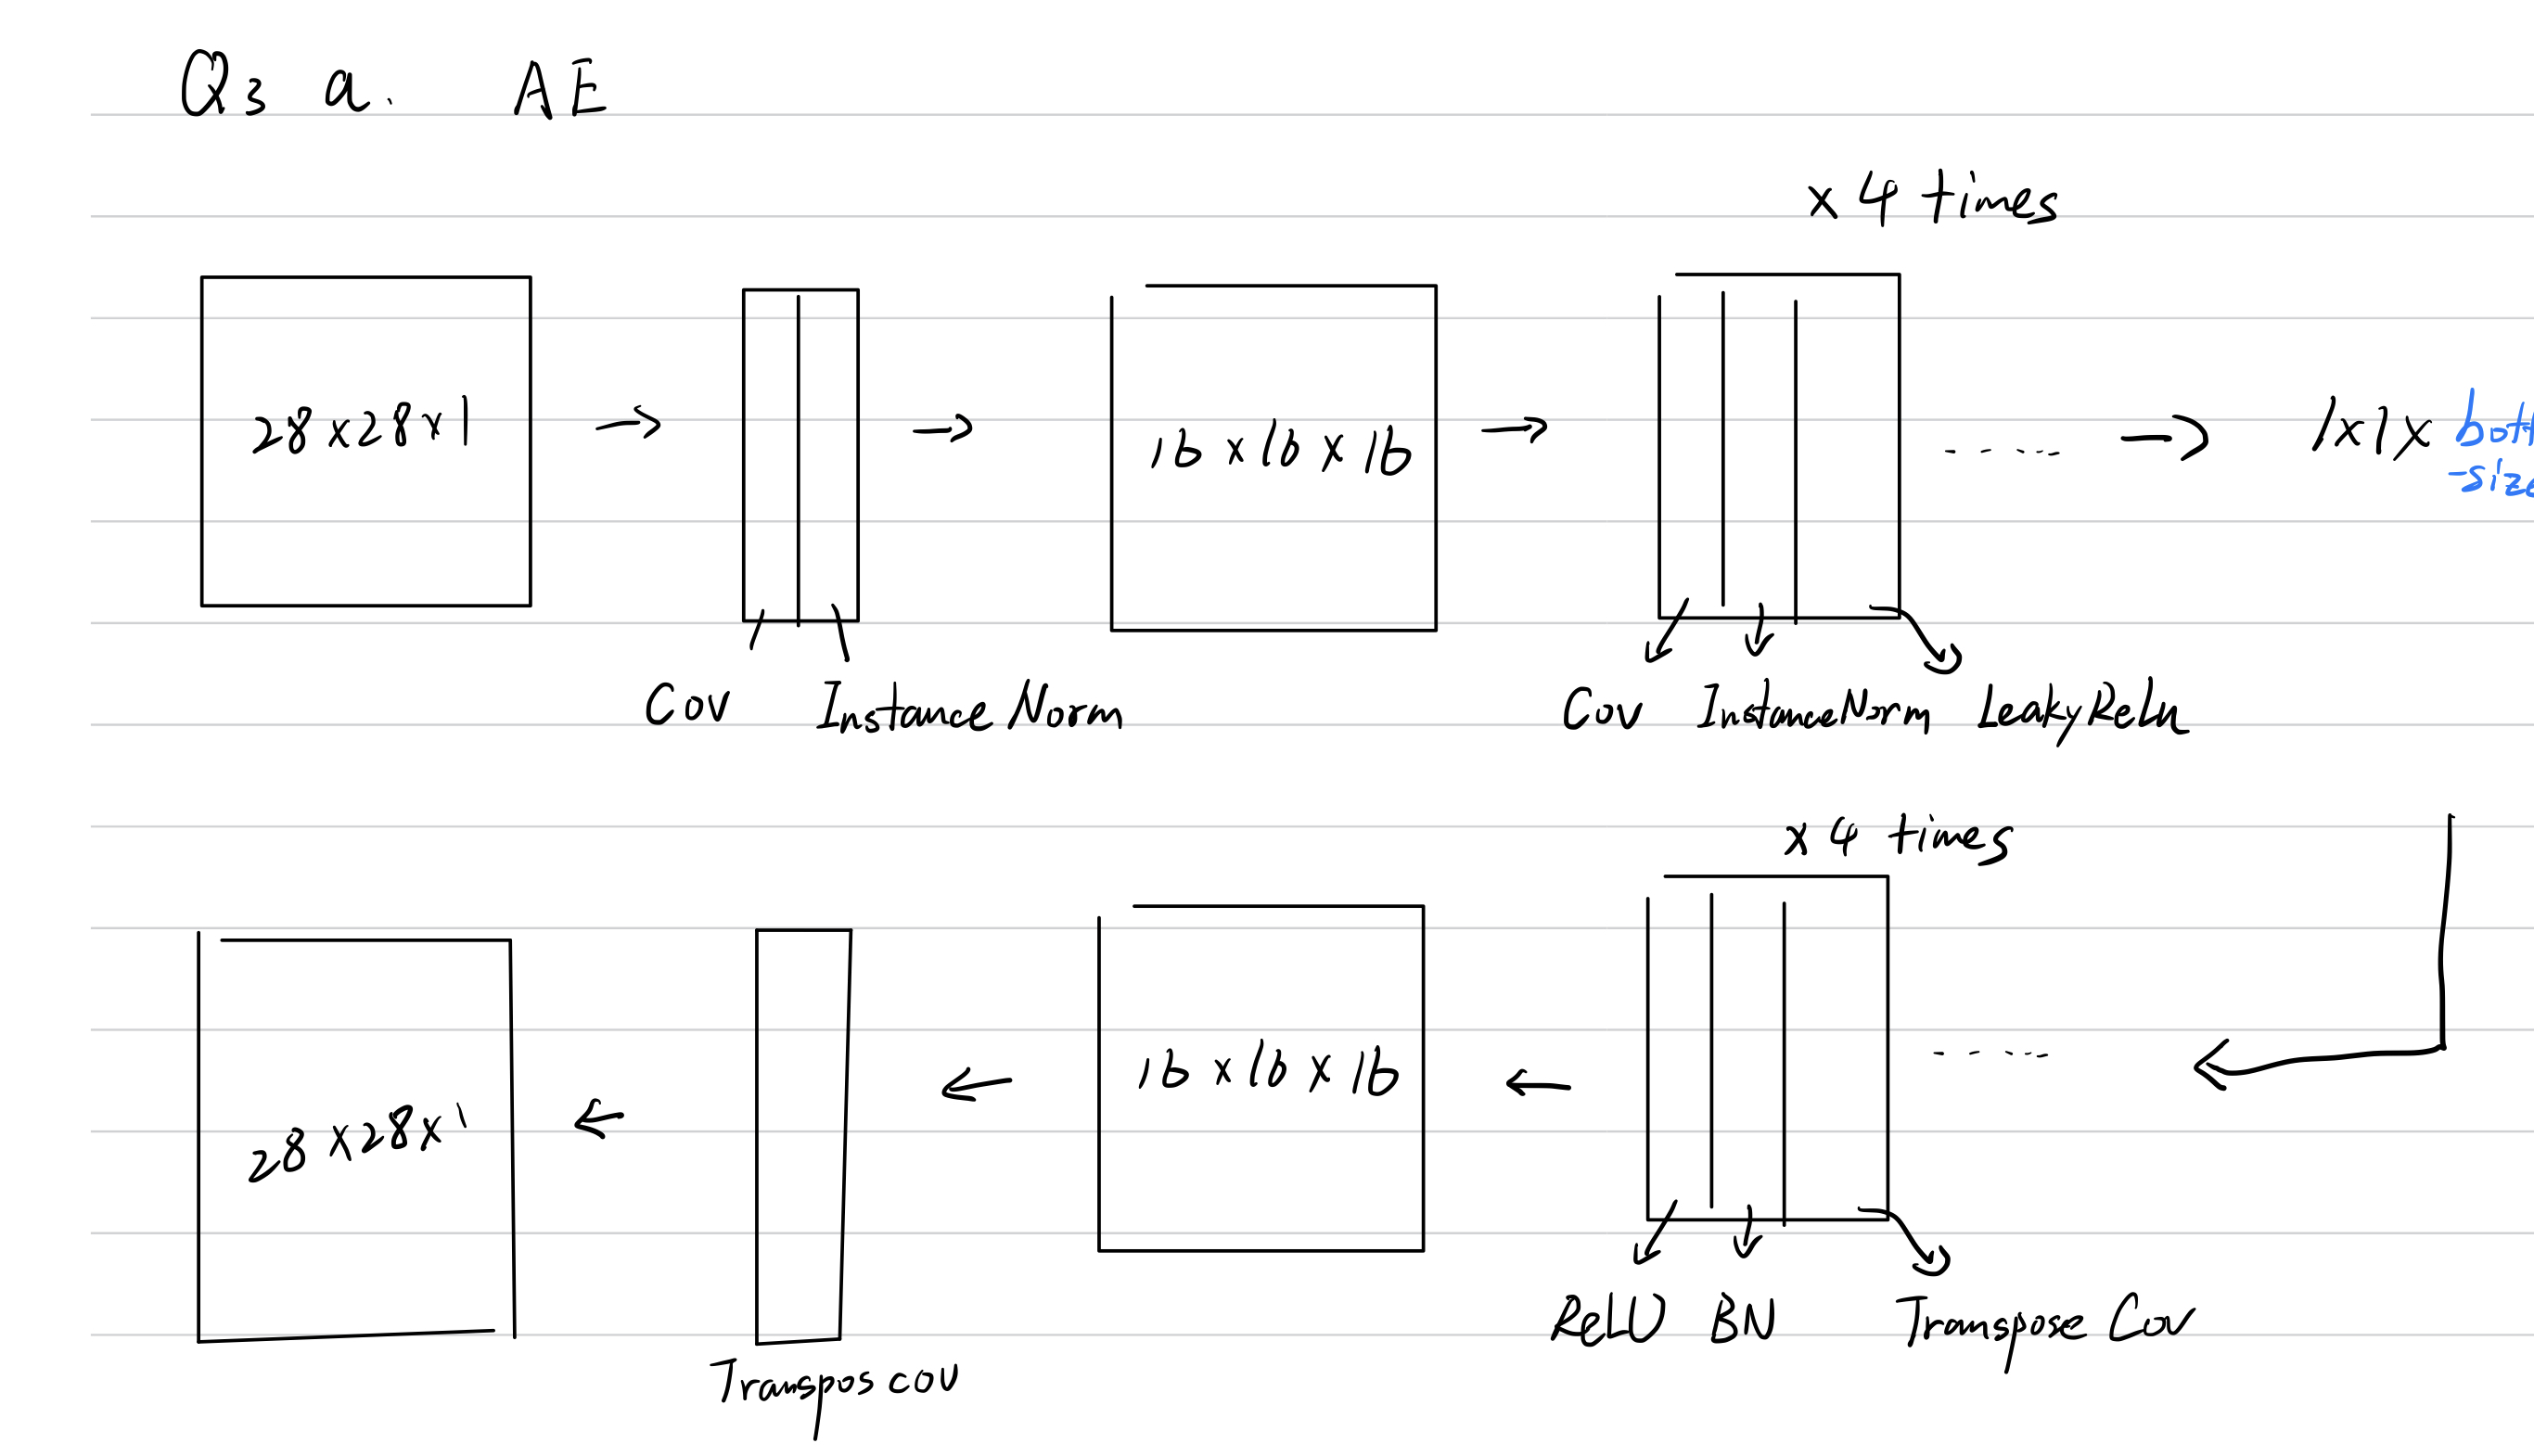 Q3 a. AE
x 4 times
28 x 28 x 1
16 x 16 x 16
1x1x
-size
Cov InstanceNorm
Cov InstanceNorm LeakyRelu
x 4 times
28 x 28 x 1
16 x 16 x 16
ReLU BN Transpose Cov
Transpos cov